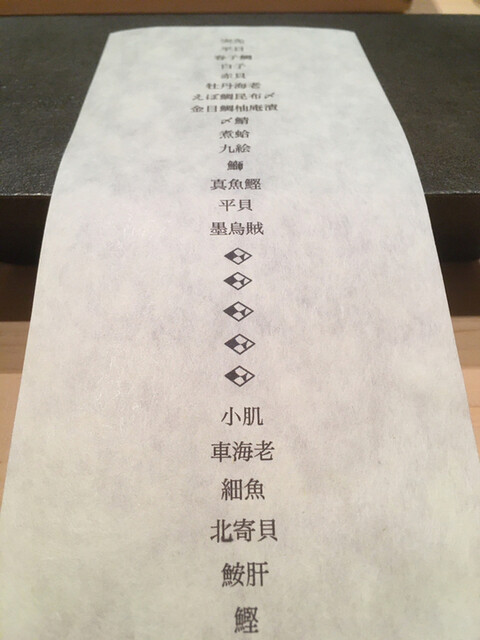 平目
春子鯛
白子
赤貝
牡丹海老
えぼ鯛昆布〆
金目鯛柚庵漬
〆鯖
煮蛤
九絵
鰤
真魚鰹
平貝
墨烏賊
小肌
車海老
細魚
北寄貝
鮟肝
鰹